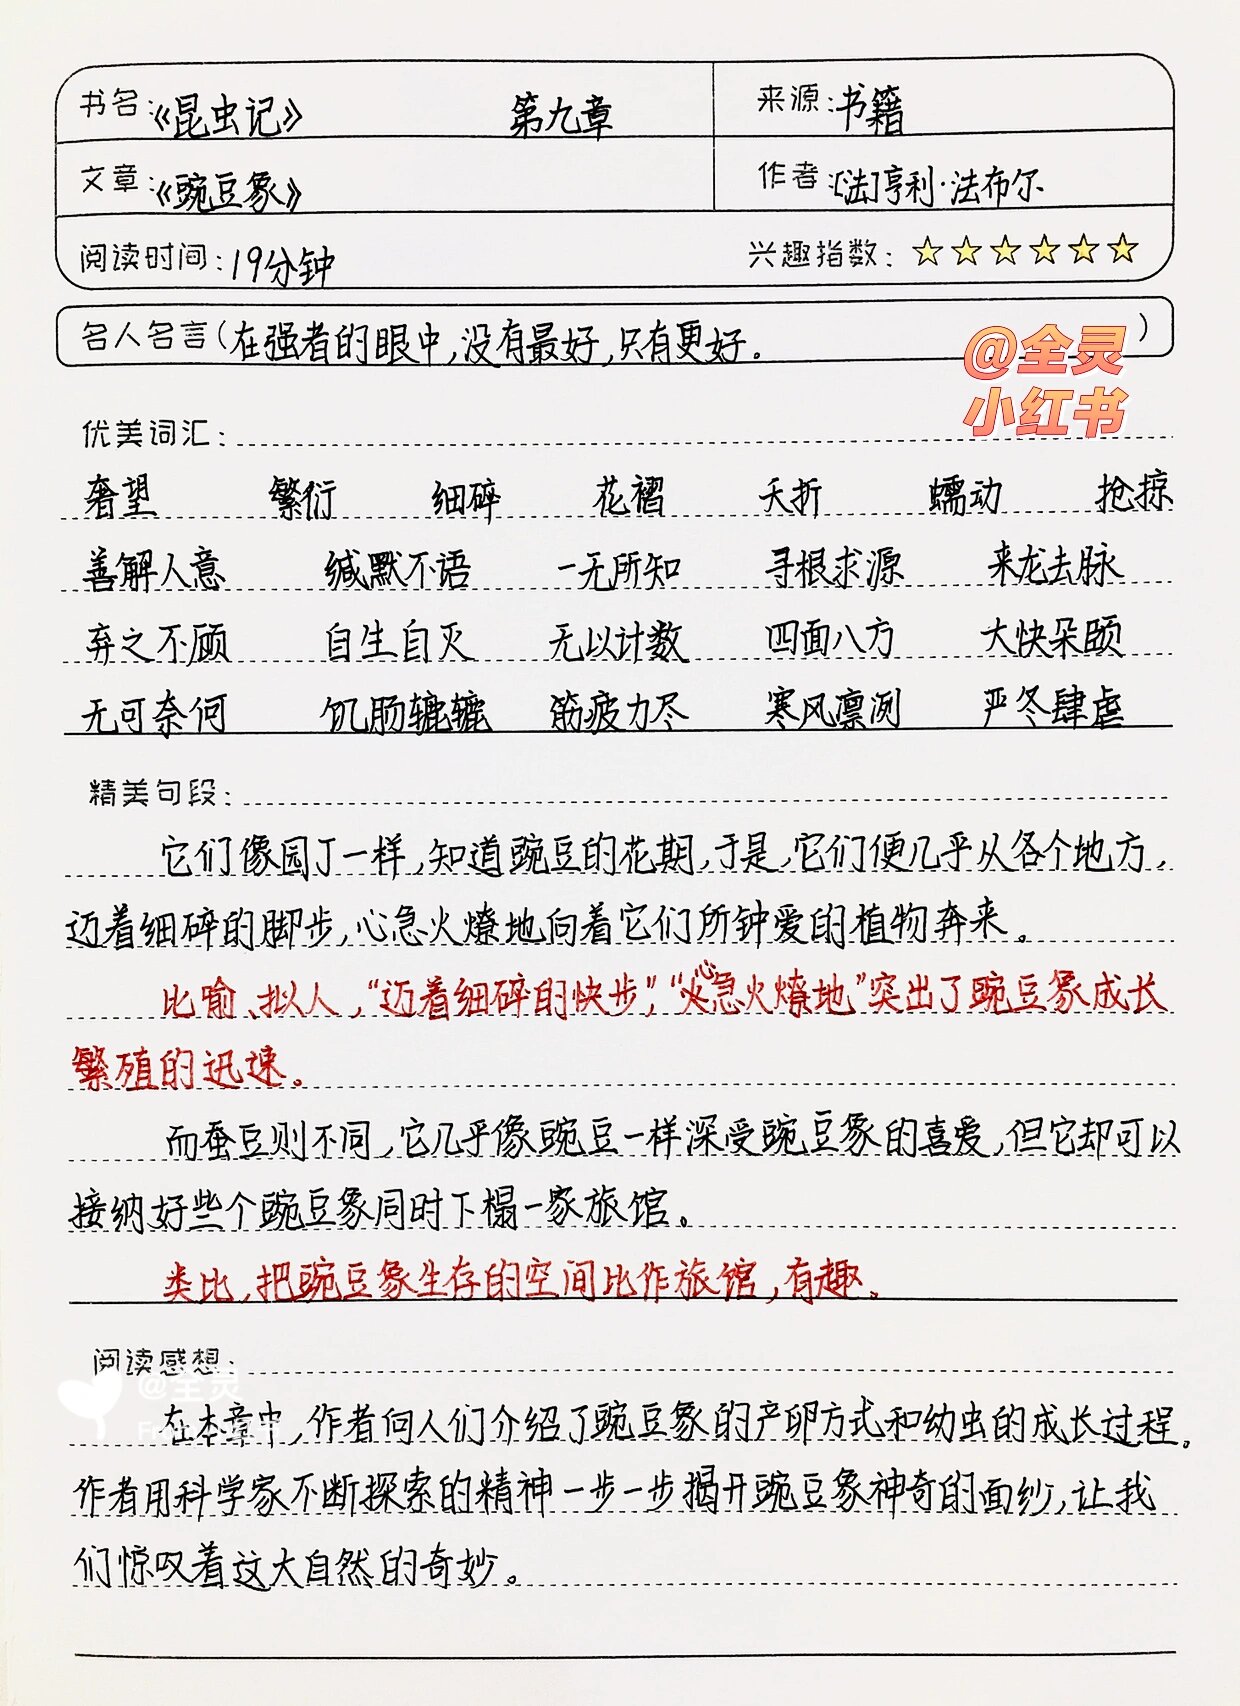 书名：《昆虫记》 第九章 来源：书籍
文章：《豌豆象》 作者：[法]亨利·法布尔
阅读时间：19分钟 兴趣指数：☆☆☆☆☆☆
名人名言（在强者的眼中，没有最好，只有更好。）
@全灵
小红书
优美词汇：
奢望 繁衍 细碎 花褶 夭折 蠕动 抢掠
善解人意 缄默不语 一无所知 寻根求源 来龙去脉
弃之不顾 自生自灭 无以计数 四面八方 大快朵颐
无可奈何 饥肠辘辘 筋疲力尽 寒风凛冽 严冬肆虐
精美句段：
它们像园丁一样，知道豌豆的花期，于是，它们便几乎从各个地方，
迈着细碎的脚步，心急火燎地向着它们所钟爱的植物奔来。
比喻、拟人，“迈着细碎的快步”，“心急火燎地”突出了豌豆象成长
繁殖的迅速。
而蚕豆则不同，它几乎像豌豆一样深受豌豆象的喜爱，但它却可以
接纳好些个豌豆象同时下榻一家旅馆。
类比，把豌豆象生存的空间比作旅馆，有趣。
阅读感想：
@全灵
在本章中，作者向人们介绍了豌豆象的产卵方式和幼虫的成长过程。
作者用科学家不断探索的精神一步一步揭开豌豆象神奇的面纱，让我
们惊叹着这大自然的奇妙。